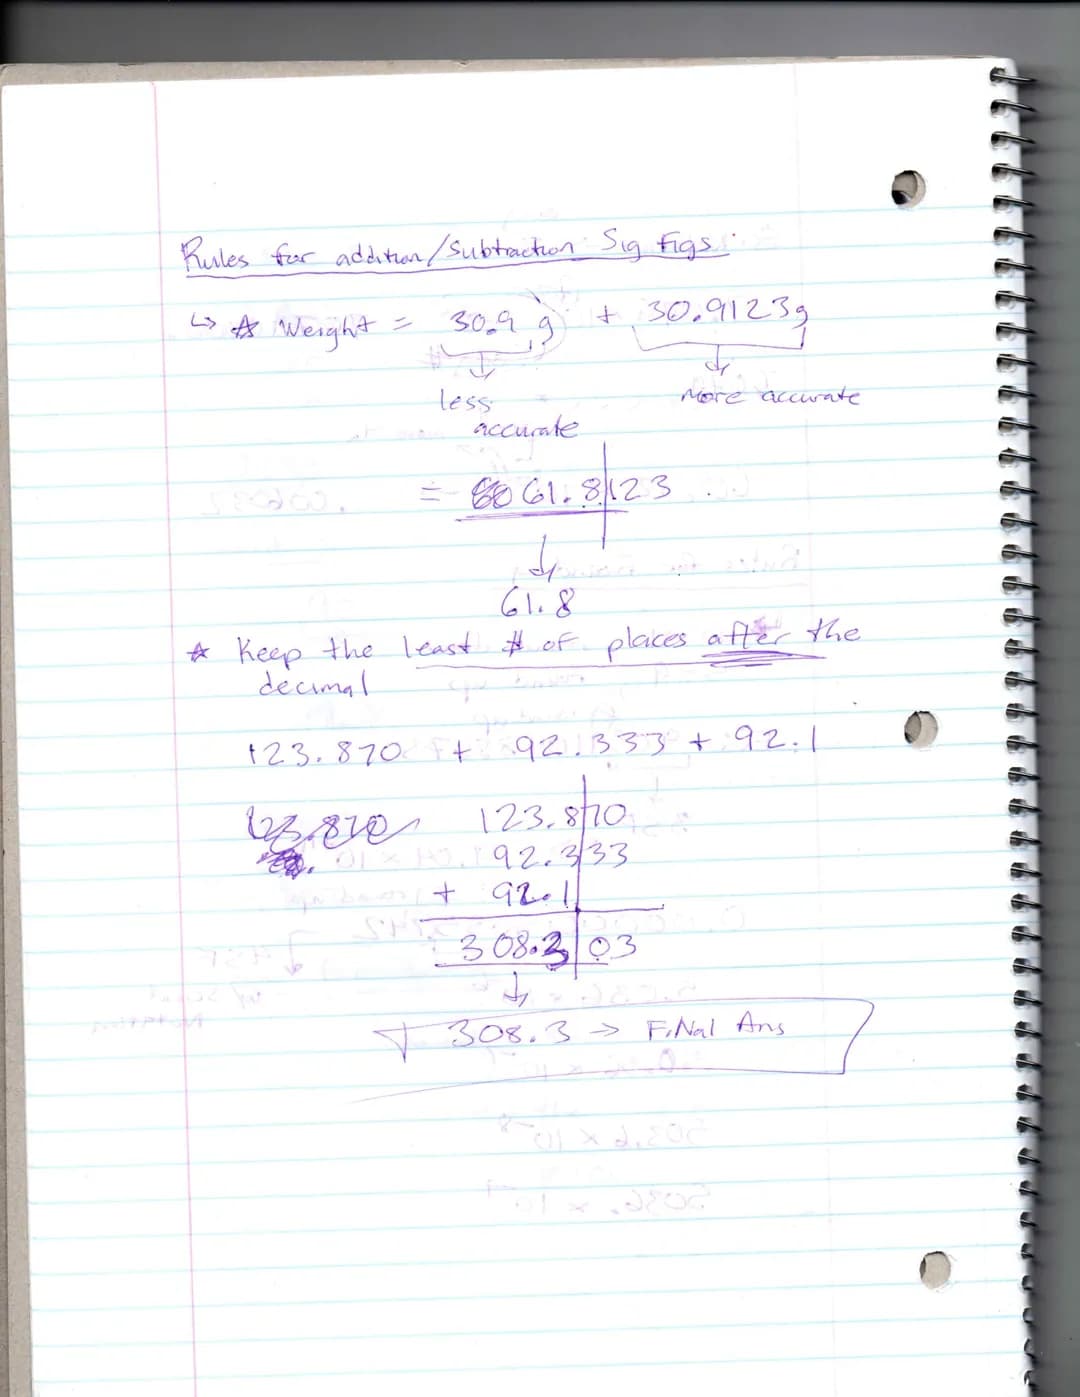 Rules for addition/subtraction Sig figs:
↳ ☆ Weight = 30.9 g + 30.9123g
less
accurate
More accurate
= 61.8|123
↓
61.8
☆ Keep the least # of places after the
decimal
123.870 + 92.333 + 92.1
123.870
123.870
92.333
+ 92.1
308.303
↓
308.3 → FiNal Ans